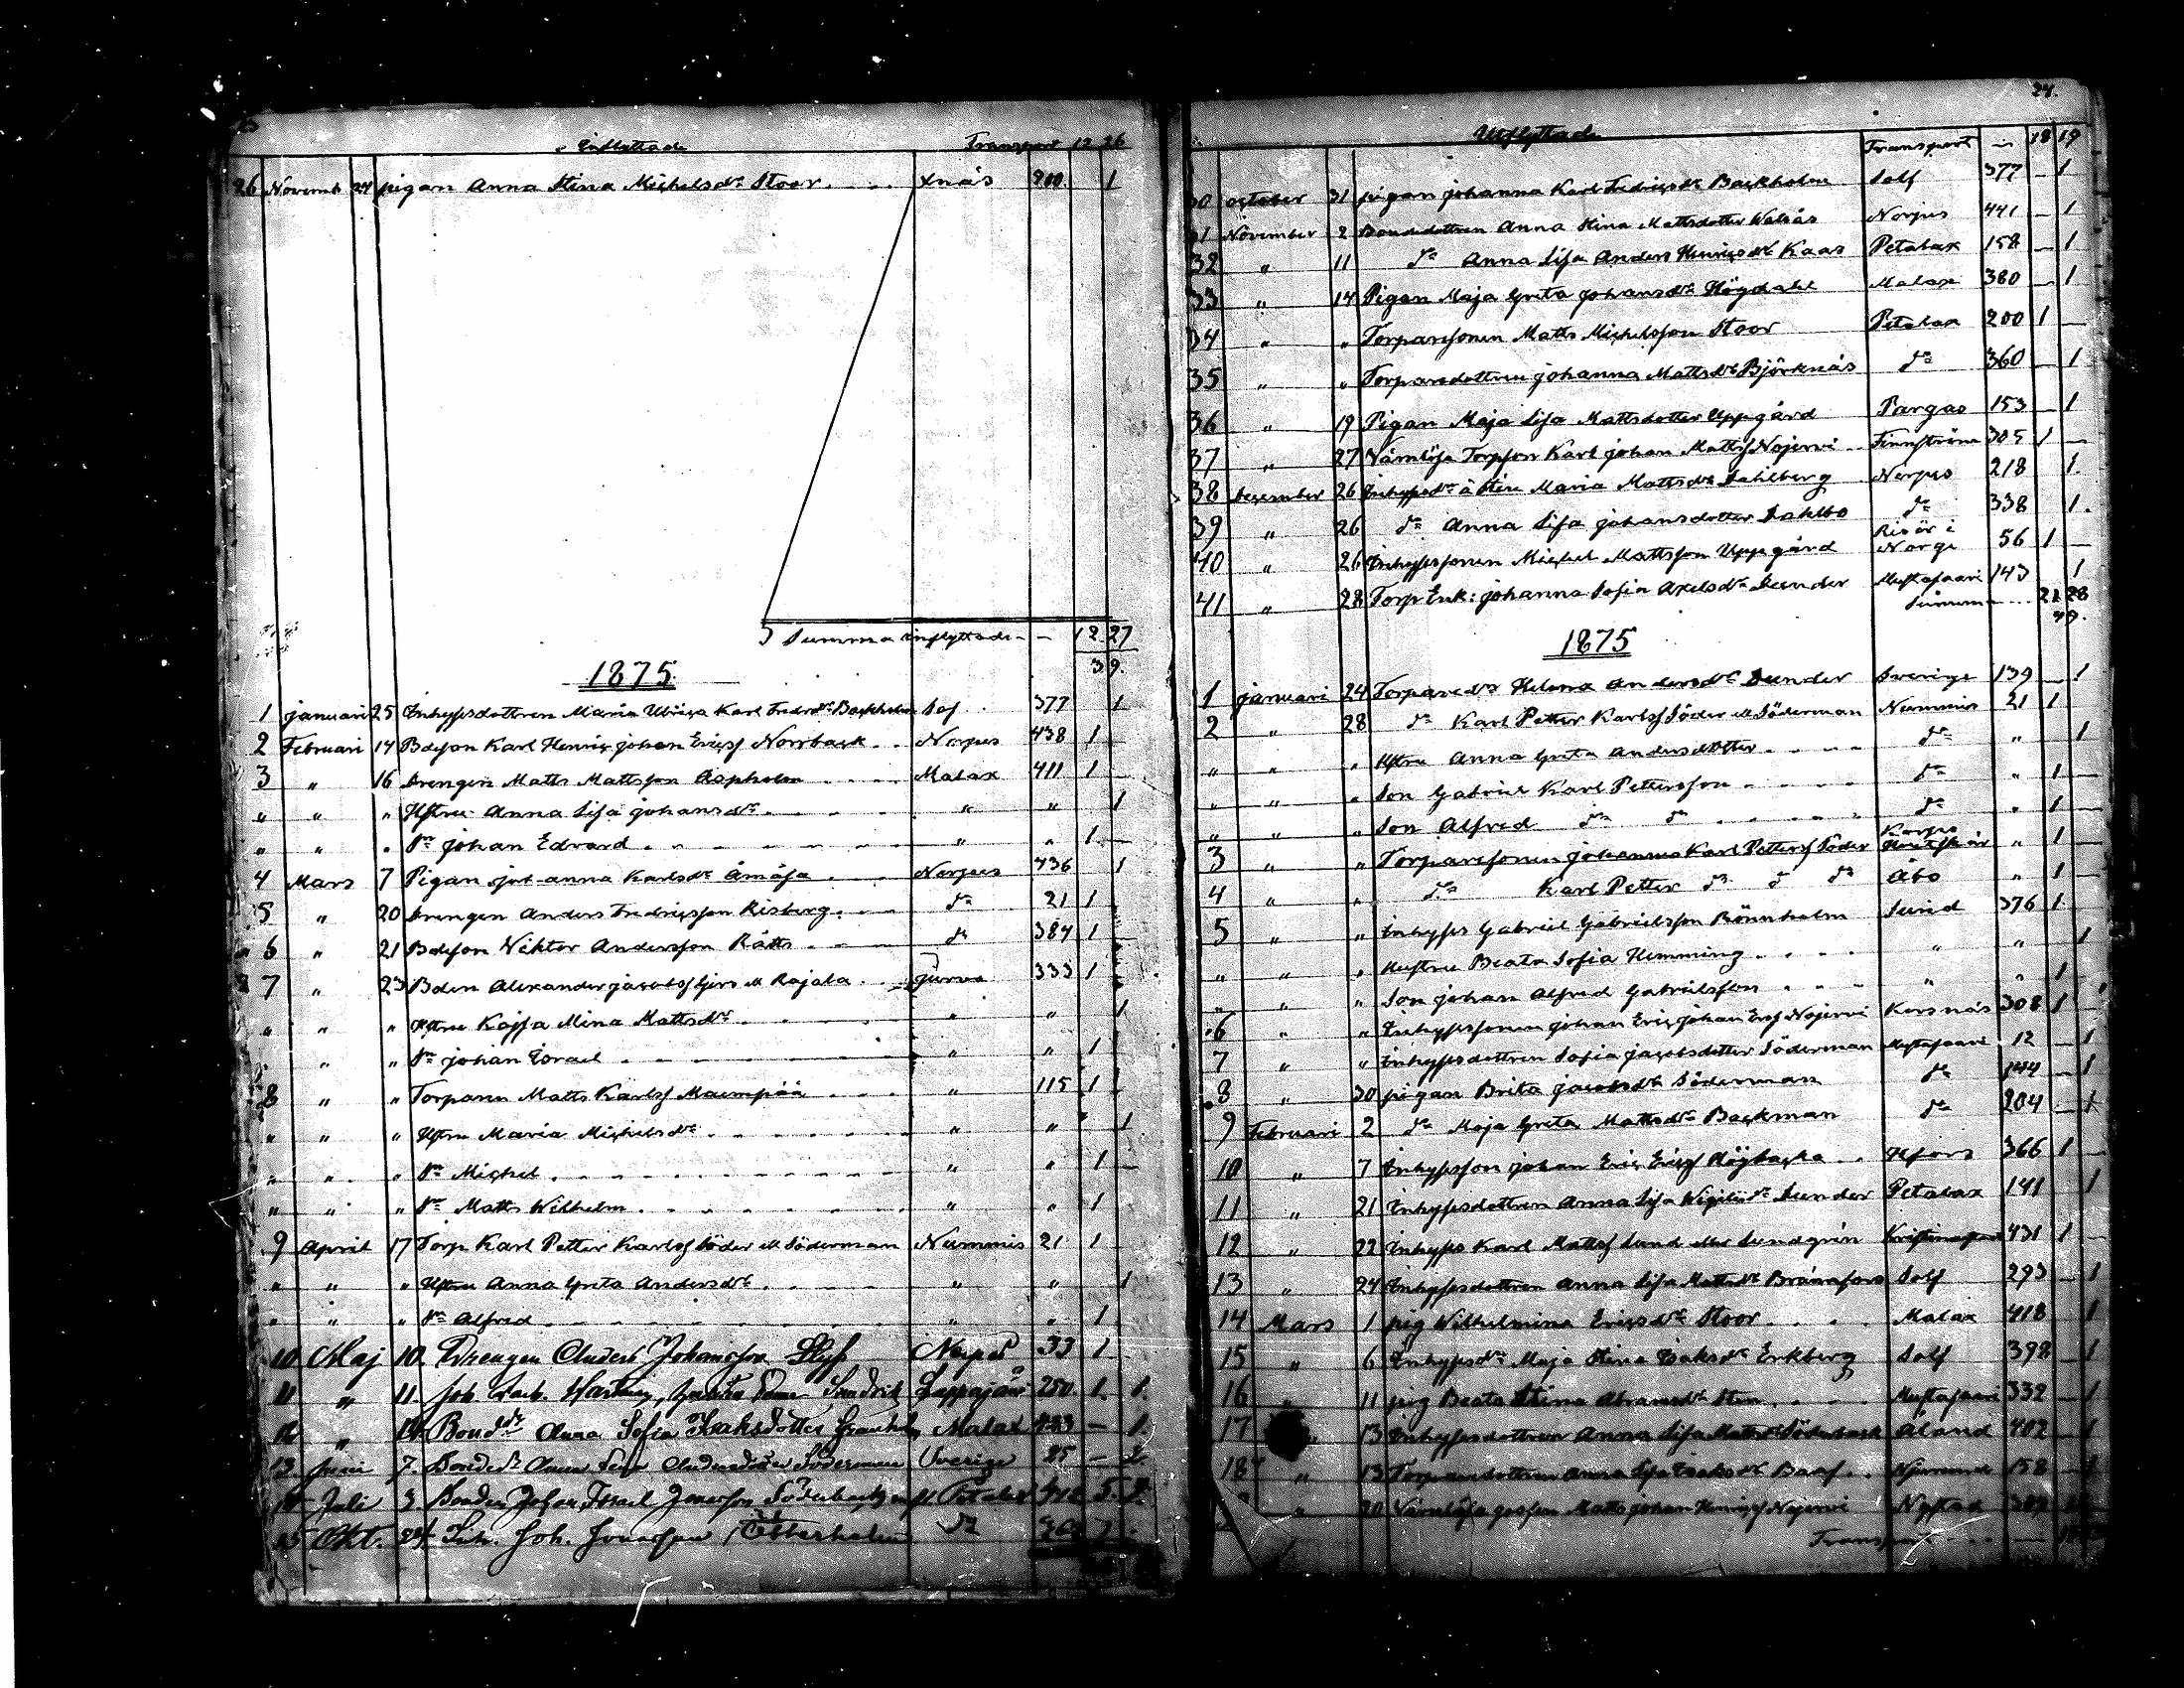 Inflyttade Transport 12 26
26 Novemb 24 pigan Anna Stina Michelsdr Stoor xnäs 200 1
Summa inflyttade 12 27
39.
1875.
1 januari 25 Inhysesdottren Maria Ulrica Karl Fredrdr Backholm Solf 377 1
2 Februari 14 Bdeson Karl Henric Johan Ericss Norrback Nerpes 438 1
3 " 16 Drengen Matts Mattsson Aspholm Malax 411 1
" " " Hstru Anna Lisa johansdr " " 1
" " " Sn johan Edvard " " 1
4 Mars 7 Pigan johanna Karlsdr Åmåsa Nerpes 436 1
5 " 20 Drengen Anders Fredricsson Risberg do 21 1
6 " 21 Bdeson Wiktor Andersson Rätts do 384 1
7 " 23 Bden Alexander jacobss Gjers el Rajala Jurva 333 1
" " " Hstru Kajsa Mina Mattsdr " " 1
" " " Sn johan Israel " " 1
8 " " Torparen Matts Karlss Maempää " 115 1
" " " Hstru Maria Michelsdr " " 1
" " " Sn Michel " " 1
" " " Sn Matts Wilhelm " " 1
9 April 17 Torp Karl Petter Karlss Söder el Söderman Nummis 21 1
" " " Hstru Anna Greta Andersdr " " 1
" " " Sn Alfred " " 1
10 Maj 10. Drengen Anders Johansson Nerpes 33 1
11 " 11. Joh. Hartwig, Lappajärvi 250. 1. 1.
12 " 14 Bonddr Anna Sofia Isaksdotter Malax 423 — 1.
13 Juni 7. Bondedr Anna Andersdotter Söderman Sverige 85 —
14 Juli 3 Bonden Johan Israel Söderback Petalax 5.
15 Okt. 24 Joh. Jonasson Otterholm do
24.
Utflyttade Transport 18 19
30 october 31 pigan johanna Karl Fredricsdr Backholm Solf 377 — 1
31 November 2 Bondedottren Anna Stina Mattsdotter Walsås Nerpes 441 — 1
32 " 11 do Anna Lisa Anders Henricsdr Kaas Petalax 158 — 1
33 " 14 Pigan Maja Greta johansdr Högdahl Malax 380 — 1
34 " " Torparesonen Matts Michelsson Stoor Petalax 200 1 —
35 " " Torparedottren johanna Mattsdr Björknäs do 360 — 1
36 " 19 Pigan Maja Lisa Mattsdotter Uppgård Pargas 153 — 1
37 " 27 Värnlösa Torpson Karl johan Mattss Nojervi Finnström 305 1 —
38 December 26 Inhysesdr Maria Mattsdr Dahlberg Nerpes 218 1
39 " 26 do Anna Lisa johansdotter Dahlbo do 338 1
40 " 26 Inhysessonen Michel Mattsson Uppgård Risör i Norge 56 1 —
41 " 28 Torp Enk: johanna Sofia Axelsdr Lunder Mustasaari 143 1
Summa 21 28
49.
1875
1 januari 24 Torparedr Helena Andersdr Lunder Sverige 139 — 1
2 " 28 do Karl Petter Karlss Söder el Söderman Nummis 21 1
" " " Hstru Anna Greta Andersdotter do " 1
" " " Son Gabriel Karl Pettersson do " 1 —
" " " Son Alfred do do do " 1 —
3 " " Torparesonen johannes Karl Petterss Söder Korpo " 1 —
4 " " do Karl Petter do do do Åbo " 1 —
5 " " Inhyses Gabriel Gabrielsson Rönnholm Sund 376 1
" " " Hustru Beata Sofia Hemming " " 1
" " " Son johan Alfred Gabrielsson " " 1
6 " " Inhysessonen johan Eric johan Ericss Nojervi Korsnäs 308 1 —
7 " " Inhysesdottren Sofia jacobsdotter Söderman Mustasaari 12 — 1
8 " 30 pigan Brita jacobsdr Söderman do 144 — 1
9 Februari 2 do Maja Greta Mattsdr Backman do 204 — 1
10 " 7 Inhysesson johan Eric Ericss Högbacka Hfors 366 1 —
11 " 21 Inhysesdottren Anna Lisa Lunder Petalax 141 1
12 " 22 Inhyses Karl Mattss Lund eller Lundgrén Kristinestad 431 1 —
13 " 24 Inhysesdottren Anna Lisa Mattsdr Brännfors Solf 293 — 1
14 Mars 1 pig Wilhelmina Ericsdr Stoor Malax 418 1
15 " 6 Inhysesdr Maja Stina Isaksdr Erkberg Solf 398 1
16 " 11 pig Beata Stina Abramsdr Sten Mustasaari 332 1
17 " 13 Inhysesdottren Anna Lisa Mattsdr Söderback Åland 402 1
18 " 13 Torparedottren Anna Lisa Isaksdr Baas 158 1
" 20 Värnlösa gossen Matts johan Henricss Nojervi Nystad
Transport